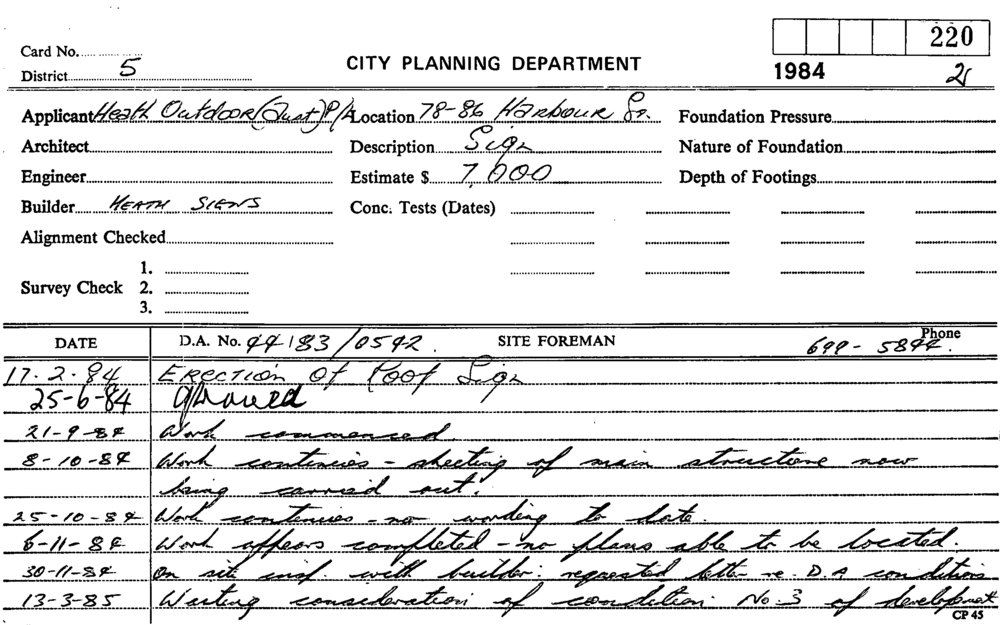 220
Card No.
District 5
CITY PLANNING DEPARTMENT
1984 2
Applicant Heath Outdoor (Aust) P/L Location 78-86 Harbour St. Foundation Pressure
Architect Description Sign Nature of Foundation
Engineer Estimate $ 7,000 Depth of Footings
Builder HEATH SIGNS Conc. Tests (Dates)
Alignment Checked
1.
Survey Check 2.
3.
DATE D.A. No. 44/83/0542. SITE FOREMAN Phone 699-5844.
17.2.84 Erection of Roof Sign
25-6-84 approved
21-9-84 Work commenced
8-10-84 Work continues - sheeting of main structure now
being carried out.
25-10-84 Work continues - no wording to date.
6-11-84 Work appears completed - no plans able to be located.
30-11-84 On site insp. with builder. requested letter re. D.A conditions
13-3-85 Waiting consideration of condition No. 3 of development
CP 45